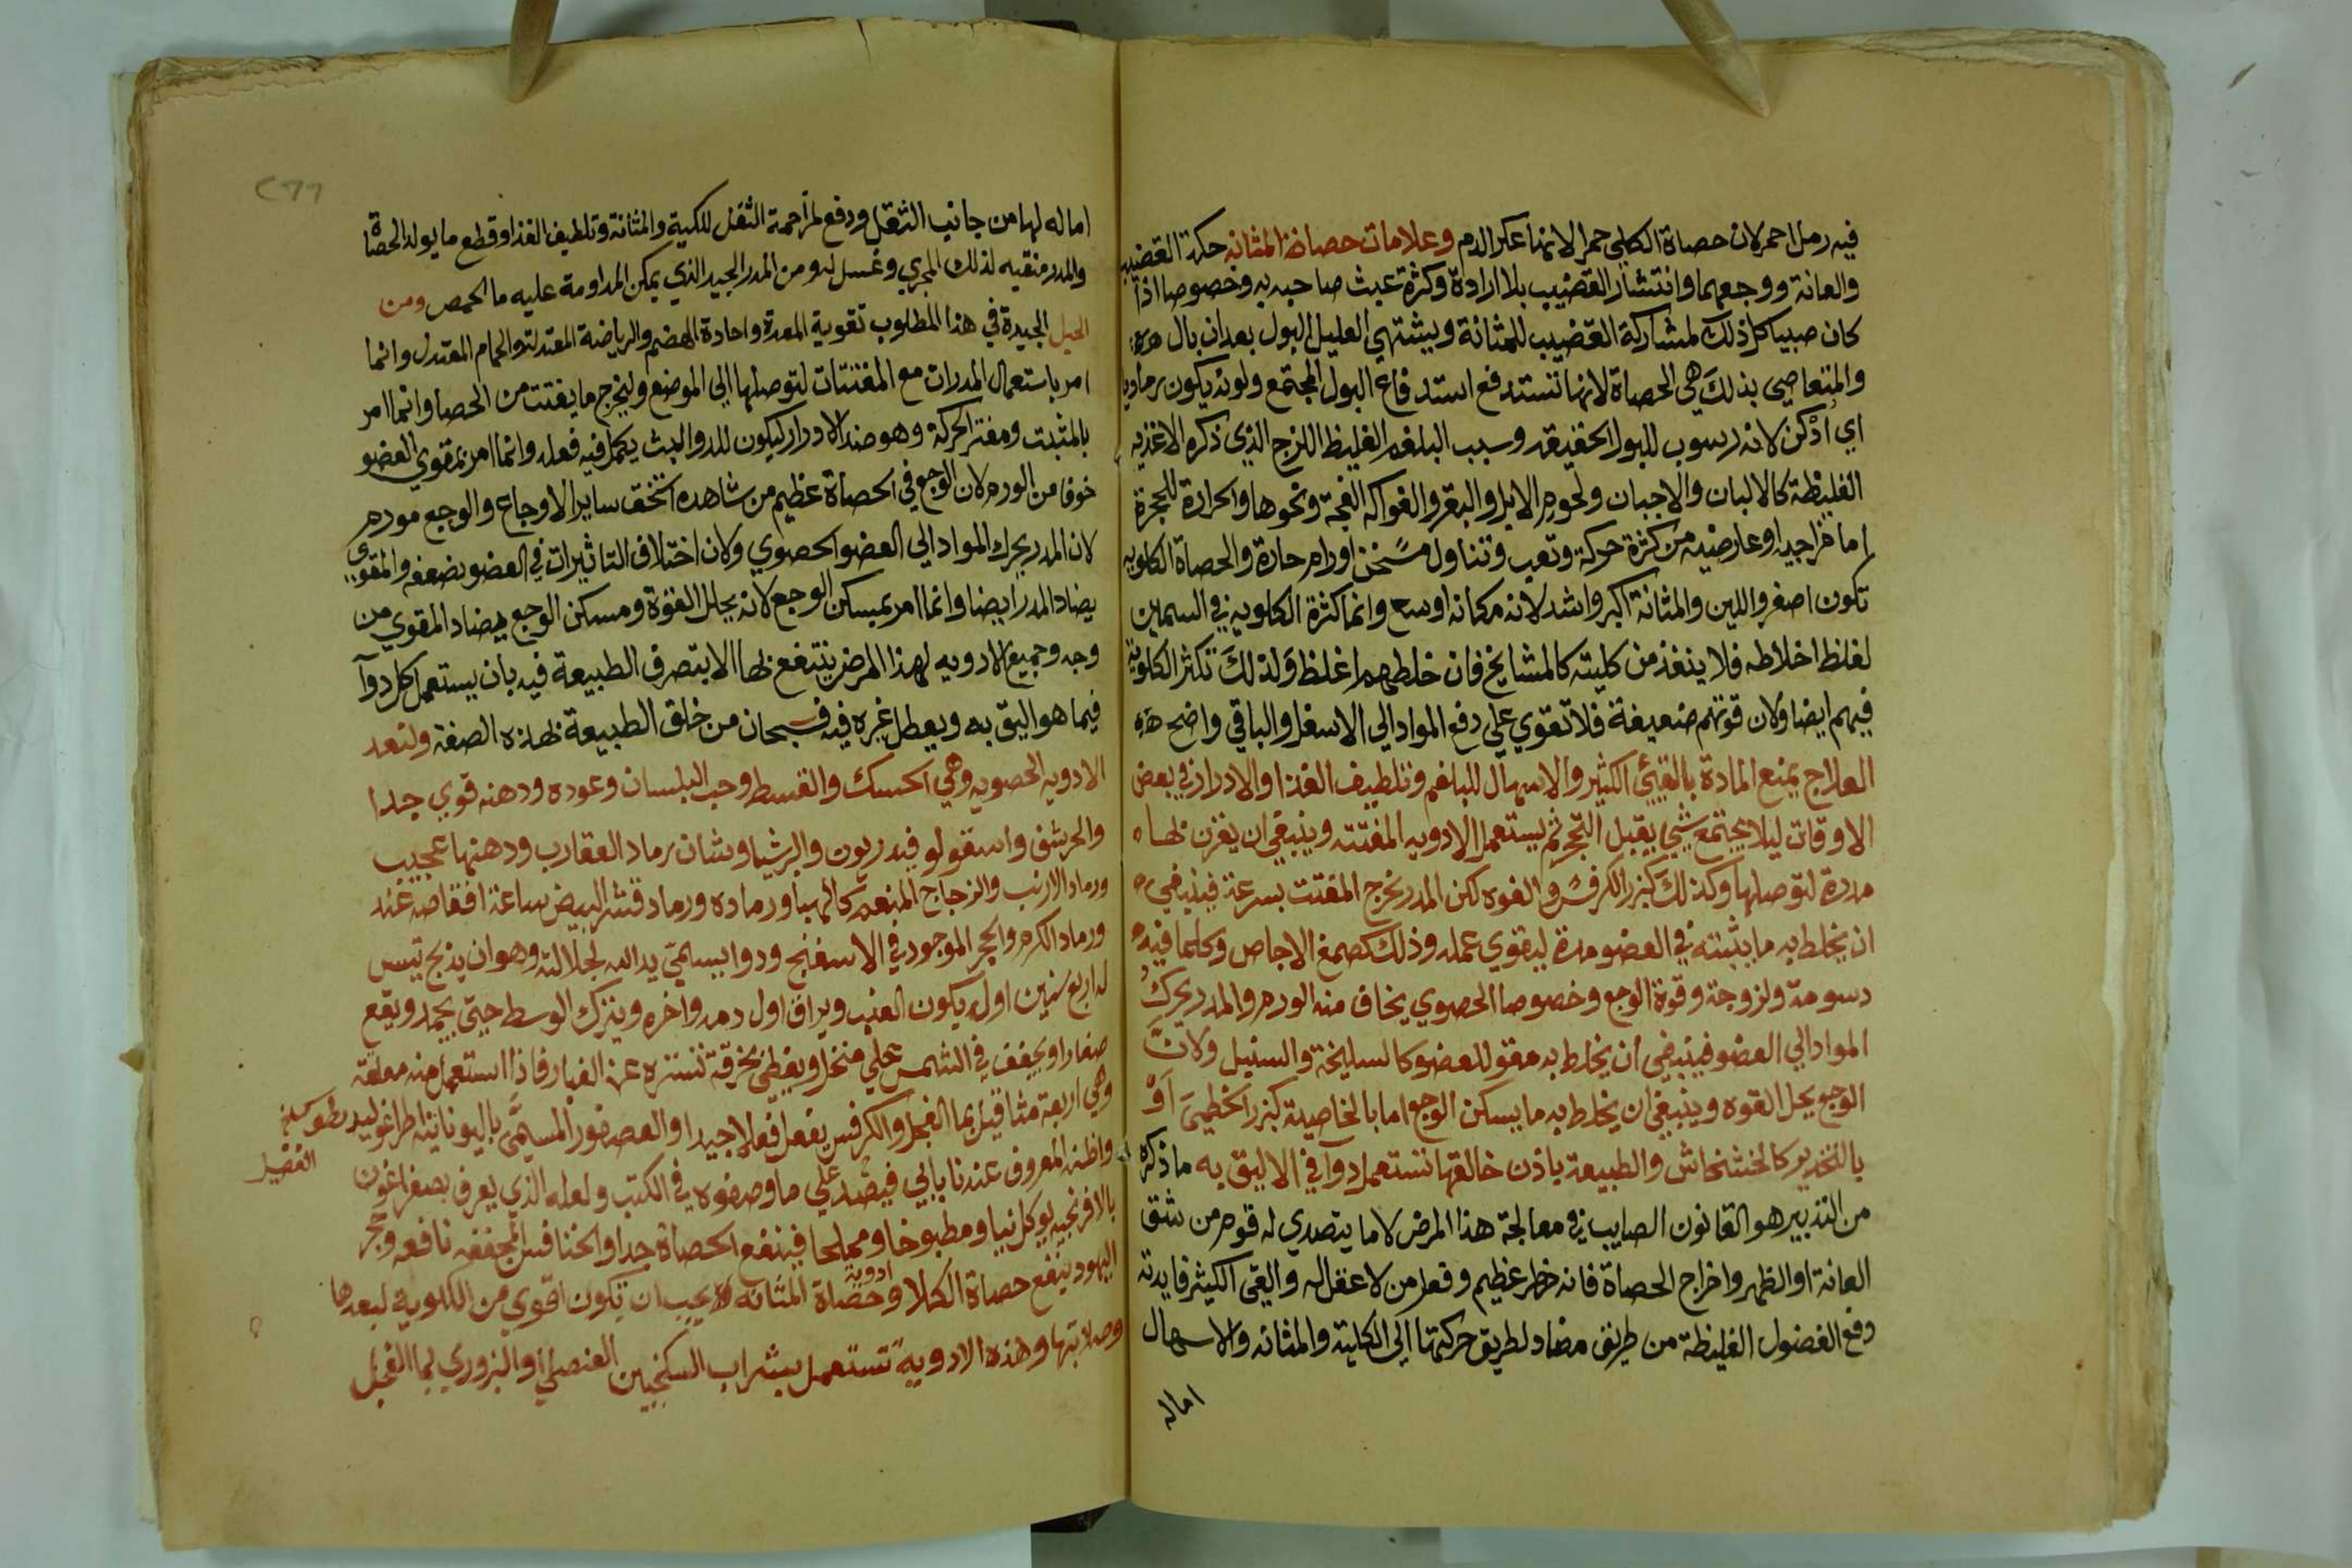 فيه رمل احمر لان حصاة الكلي حمر الانها عكر الدم وعلامات حصاة المثانه حكة القضيب
والعانة ووجعهما وانتشار القضيب بلا ارادة وكثرة عبث صاحبه به وخصوصا اذا
كان صبيا كل ذلك لمشاركة القضيب للمثانة ويشتهي العليل البول بعد ان بال مرة
والمتعاصي بذلك هي الحصاة لانها تستدفع استدفاع البول المجتمع ولونه يكون رماديا
اي ادكن لانه رسوب للبول الحقيقه وسبب البلغم الغليظ اللزج الذي ذكره الاغذيه
الغليظة كالالبان والاجبان ولحوم الابل والبقر والفواكه الفجة ونحوها والحرارة للحجرة
اما مزاجيه او عارضيه من كثرة حركة وتعب وتناول مسخن اورام حارة والحصاة الكلويه
تكون اصغر والين والمثانة اكبر واشد لانه مكانه اوسع وانما كثرة الكلويه في السمين
لغلظ اخلاطه فلا ينفذ من كليته كالمشايخ فان خلطهم اغلظ ولذلك تكثر الكلوية
فيهم ايضا ولان قوتهم ضعيفة فلا تقوي علي دفع المواد الي الاسفل والباقي واضح هه
العلاج يمنع المادة بالقيئ الكثير والاسهال للبلغم وتلطيف الغذا والادرار في بعض
الاوقات ليلا يجتمع شيئ يقبل التحجر ثم يستعمل الادويه المفتته وينبغي ان يقرن بها
مدرة لتوصلها وكذلك كبزر الكرفس والفوه لكن المدر يخرج المفتت بسرعة فينبغي
ان يخلط به ما يثبته في العضو مدة ليقوي عمله وذلك كصمغ الاجاص وكلما فيه
دسومة ولزوجة وقوة الوجع وخصوصا الحصوي يخاف منه الورم والمدر يحرك
المواد الي العضو فينبغي ان يخلط به مقو للعضو كالسليخة والسنبل ولان
الوجع يحل القوه وينبغي ان يخلط به ما يسكن الوجع اما بالخاصية كبزر الخطمي او
بالتخدير كالخشخاش والطبيعة باذن خالقها تستعمل دوا في الاليق به ما ذكره
من التدبير هو القانون الصايب في معالجة هذا المرض لا ما يتصدي له قوم من شق
العانة او الظهر واخراج الحصاة فانه خطر عظيم وفعل من لا عقل له والقي الكثير فايدته
دفع الفضول الغليظة من طريق مضاد لطريق حركتها الي الكلية والمثانه والاسهال
اماله
اماله لها من جانب الثقل ودفع لمزاحمة الثفل للكلية والمثانة وتلطيف الغذا وقطع ما يولد الحصاة
والمدر منقيه لذلك المجري وغسل له ومن المدر الجيد الذي يمكن المداومة عليه ما الحمص ومن
الحيل الجيدة في هذا المطلوب تقوية المعدة واجادة الهضم والرياضة المعتدلة والحمام المعتدل وانما
امر باستعمال المدرات مع المفتتات لتوصلها الي الموضع وليخرج ما يفتت من الحصا وانما امر
بالمثبت ومفتر الحركة وهو ضد الادرار ليكون للدوا لبث يكمل فيه فعله وانما امر بمقوي العضو
خوفا من الورم لان الوجع في الحصاة عظيم من شاهده استخف ساير الاوجاع والوجع مورم
لان المدر يحرك المواد الي العضو الحصوي ولان اختلاف التاثيرات في العضو يضعفه والمقوي
يضاد المدر ايضا وانما امر بمسكن الوجع لانه يحلل القوة ومسكن الوجع يضاد المقوي من
وجه وجميع الادويه لهذا المرض ينتفع بها الا بتصرف الطبيعة فيه بان يستعمل كل دوآ
فيما هو اليق به ويعطل غيره فيه فسبحان من خلق الطبيعة بهذه الصفة ولنعد
الادويه الحصويه وهي الحسك والقسط وحب البلسان وعوده ودهنه قوي جدا
والحرشف واسقولو قندريون والبرشياوشان رماد العقارب ودهنها عجيب
ورماد الارنب والزجاج المنعم كالهبا ورماده ورماد قشر البيض ساعة افقاصه عند
ورماد الكرم والحجر الموجود في الاسفنج ودوا يسمي يد الله لجلالته وهو ان يذبح تيس
له اربع سنين اول يكون العنب ويراق اول دمه واخره ويترك الوسط حتي يجمد ويقع
صغارا ويجفف في الشمس علي منخل ويغطي بخرقة تستره عن الغبار فاذا استعمل منه معلقة
وهي اربعة مثاقيل بما الفجل والكرفس يفعل فعلا جيدا والعصفور المسمي باليونانية طراغوليد يطوس
الفضيل
واظنه المعروف عندنا بابي فيضد علي ما وصفوه في الكتب ولعله الذي يعرف بصفراغون
بالافرنجيه يوكل نيا ومطبوخا ومملحا فينفع الحصاة جدا والخنافس المجففه نافعه وحجر
اليهود ينفع حصاة الكلا وحصاة المثانه ادوية يجب ان تكون اقوي من الكلوية لبعدها
وصلابتها وهذه الادوية تستعمل بشراب السكنجبين العنصلي او البزوري بما الفجل